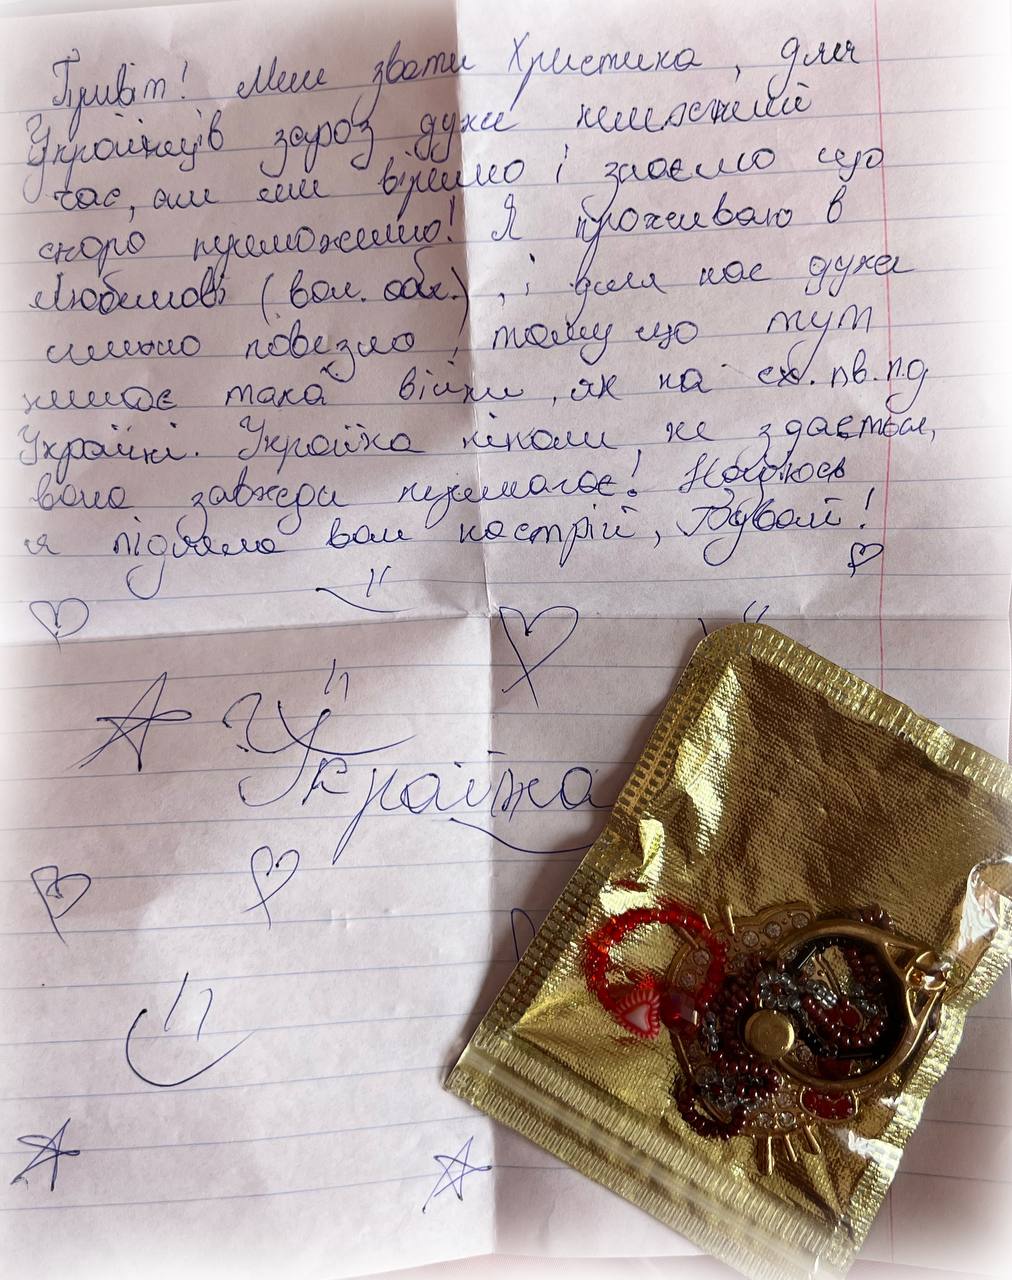 Привіт! Мене звати Христина, для
Українців зараз дуже нелегкий
час, але ми віримо і знаємо що
скоро переможемо! Я проживаю в
Любомлі (вол. обл.), і для нас дуже
сильно повезло, тому що тут
немає такої війни, як на сх. пв. пд
Україні. Україна ніколи не здається,
вона завжди перемагає! Надіюсь
я підняла вам настрій, Бувай!
Україна